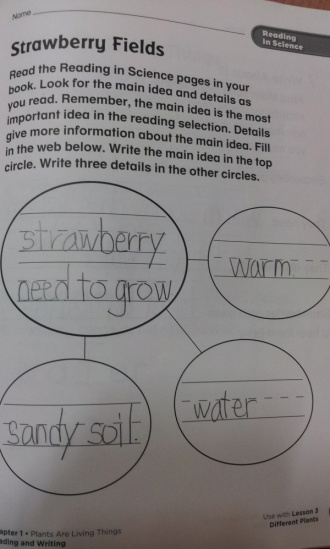 Name
Reading
in Science
Strawberry Fields
Read the Reading in Science pages in your
book. Look for the main idea and details as
you read. Remember, the main idea is the most
important idea in the reading selection. Details
give more information about the main idea. Fill
in the web below. Write the main idea in the top
circle. Write three details in the other circles.
strawberry
need to grow
warm
sandy soil.
water
apter 1 • Plants Are Living Things
ading and Writing
Use with Lesson 3
Different Plants